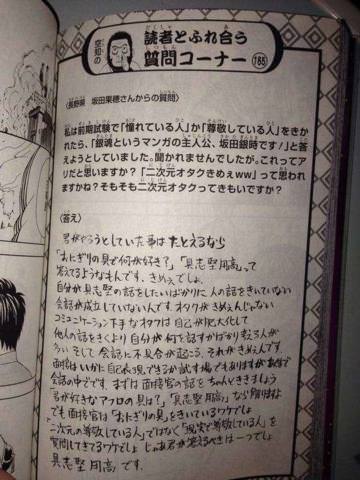 空知の
読者とふれ合う
質問コーナー
185
〈長野県 坂田果穂さんからの質問〉
私は前期試験で「憧れている人」か「尊敬している人」をきか
れたら、「銀魂というマンガの主人公、坂田銀時です!」と答
えようとしていました。聞かれませんでしたが。これってア
リだと思いますか?「二次元オタクきめぇww」って思わ
れますかね?そもそも二次元オタクってきもいですか?
〈答え〉
君がやろうとしていた事は たとえるなら
「おにぎりの具で何が好き?」「具志堅用高」って
答えてるようなもんです。きめぇでしょ。
自分が具志堅の話をしたいばかりに 人の話をきいていない
会話が成立していないんです。オタクがきめぇんじゃない
コミュニケーション下手なオタクは自己が肥大化して
他人の話をきくより 自分が何を話すかばかり考える人が
多い そして 会話に不具合が起こる。それがきめぇんです
面接はいかに自己表現できるか試す場でもありますが あくまで
会話の中でです。まずは面接官の話を ちゃんときましょう
君が好きなアフロの具は?「具志堅用高」なら
でも面接官は「おにぎりの具」をきいているワケでしょ
「二次元の尊敬している人」ではなく「現実で尊敬している人」を
質問してきてるワケでしょ じゃあ君が答えるべきは一つでしょ
具志堅用高 です。